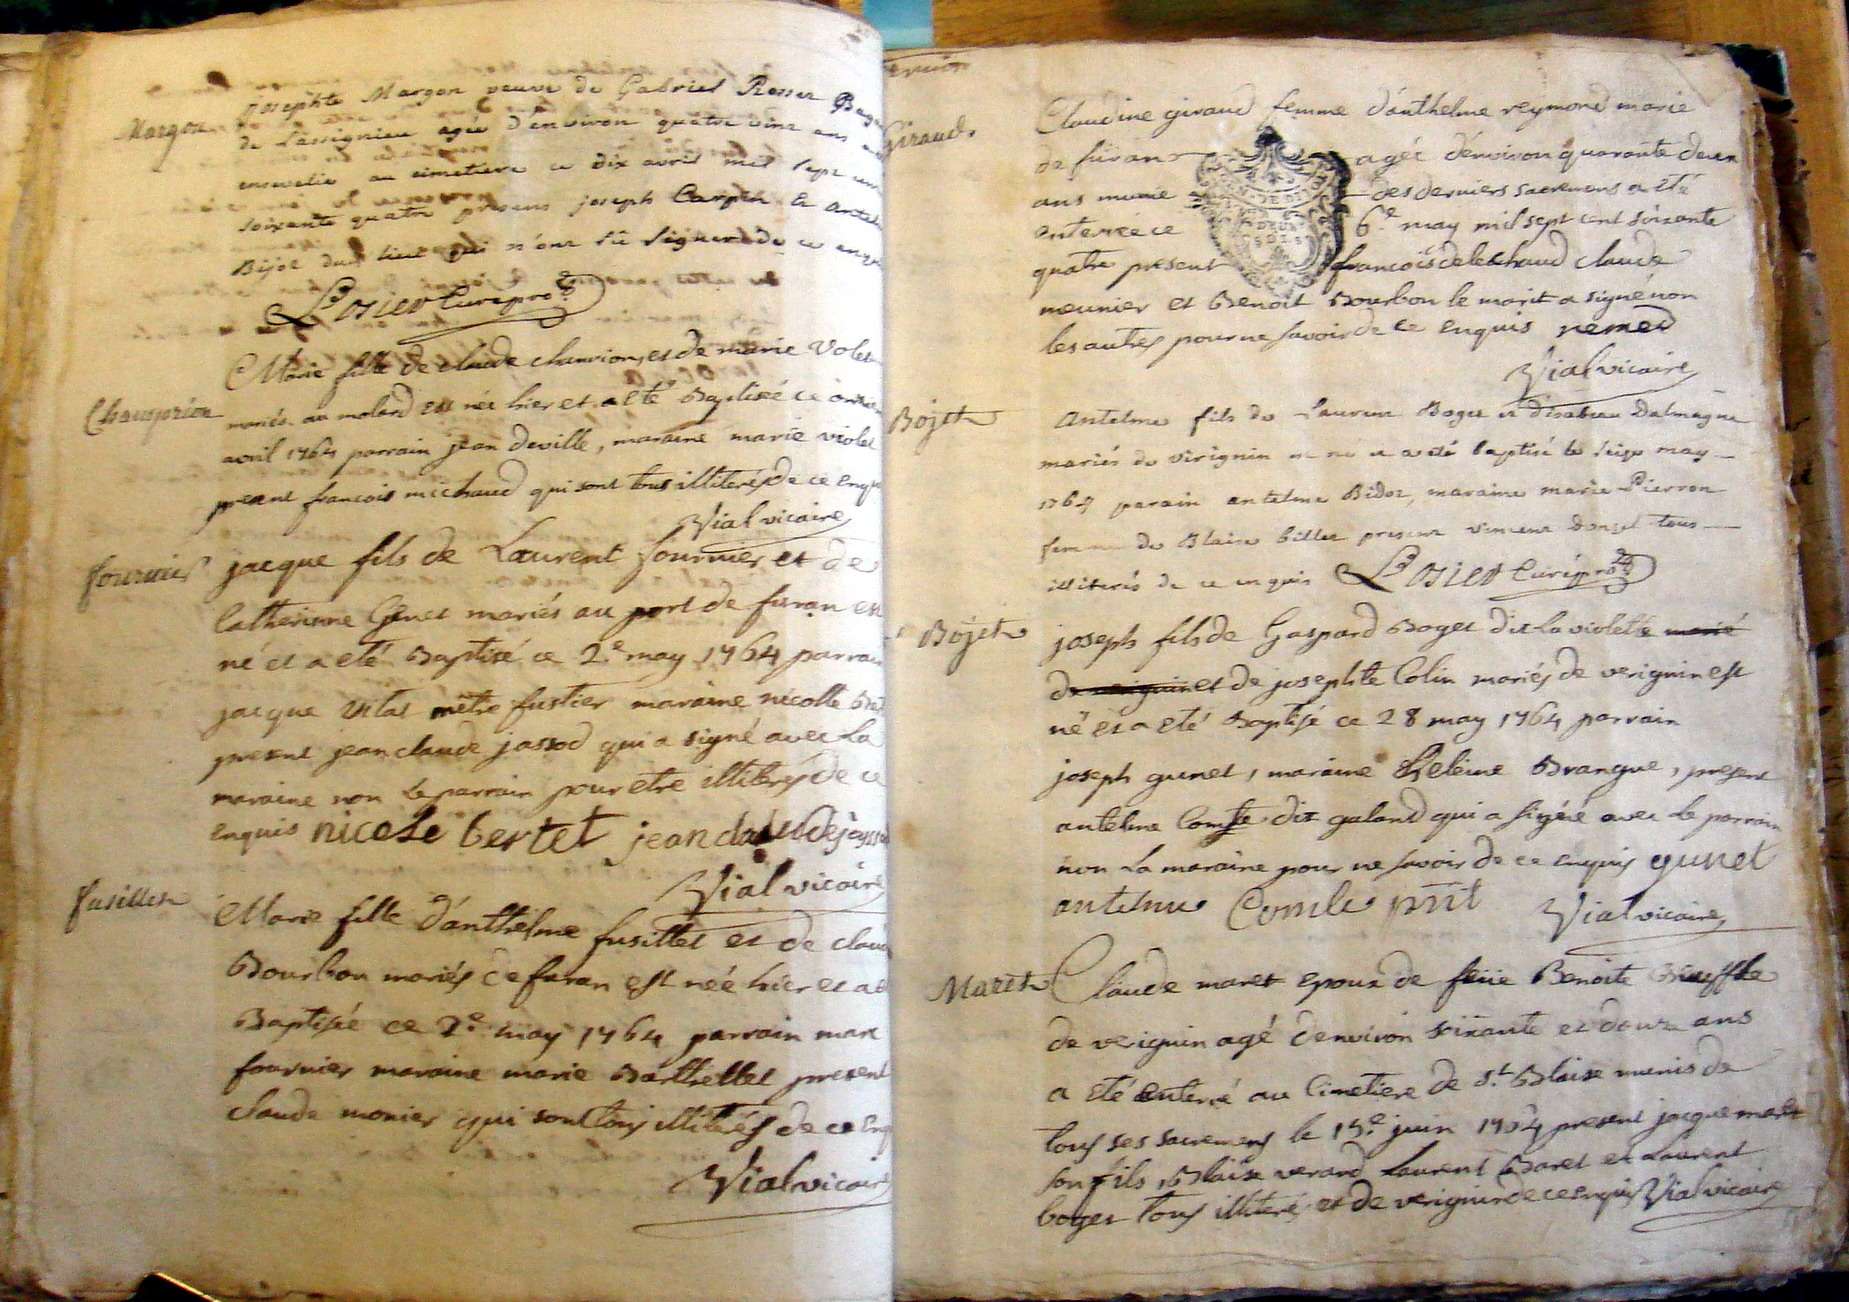 Margon
josephte Margon veuve de Gabriel Rosser
de Lassignieu agée d'environ quatre vint ans
ensevelie au cimetiere ce dix avril mil sept cent
soixante quatre presens joseph Carpin &
Bijot du lieu qui n'ont sû signer de ce enquis
Losier Curé pro.
Chanvrion
Marie fille de claude chanvrion, et de marie Volet
mariés au molard est née hier et a eté Baptisée ce
avril 1764 parrain jean deville, maraine marie violet
present francois michaud qui sont tous illiterés de ce enquis
Vial vicaire
fournier
jacque fils de Laurent fournier et de
Catherinne Genet mariés au port de furan est
né et a eté Baptisé ce 2.e may 1764 parrain
jacque vital mêtre fustier maraine nicolle
present jean claude jassod qui a signé avec La
maraine non Le parrain pour etre illiteréz de ce
enquis nicole bertet jean claude jasso
Vial vicaire
fusillet
Marie fille d'anthelme fusillet et de claud
Bourbon mariés de furan est née hier et a e
Baptisée ce 2.e may 1764 parrain marc
fournier maraine marie Barthellet present
claude monier qui sont tous illiterés de ce Enq
Vial vicaire
Giraud
Claudine giraud femme d'anthelme reymond marie
de furan agée d'environ quarante deux
ans munie des derniers sacremens a eté
anterrée ce 6.e may mil sept cent soixante
quatre present francois delechaud claude
meunier et Benoit Bourbon le marit a signé non
les autres pour ne savoir de ce enquis remed
Vial vicaire
Bojet
Antelme fils de Laurent Boget et d'isabeau Dalmagne
mariés de virignin est né et a eté baptisé le seize may
1764 parain antelme Bidoz, maraine marie Pierron
femme de Blaise billet present vincent donzel tous
illiterés de ce enquis Losier Curé pro.
Bojet
joseph fils de Gaspard Boget dit La violette marié
de verignin et de josephte Colin mariés de verignin est
né et a eté Baptisé ce 28 may 1764 parrain
joseph gunet, maraine heleine Brangue, present
antelme Comte dit galand qui a signé avec Le parrain
non La maraine pour ne savoir de ce enquis gunet
antelme Comte pnt Vial vicaire
Maret
Claude maret epoux de feüe Benoite
de verignin agé d'environ soixante et douze ans
a eté enterré au Cimetiere de St Blaise munis de
tous ses sacremens le 15.e juin 1764 present jacque maret
son fils, Blaise verard Laurent Baret et Laurent
boget tous illiterés et de verignin de ce enquis Vial vicaire